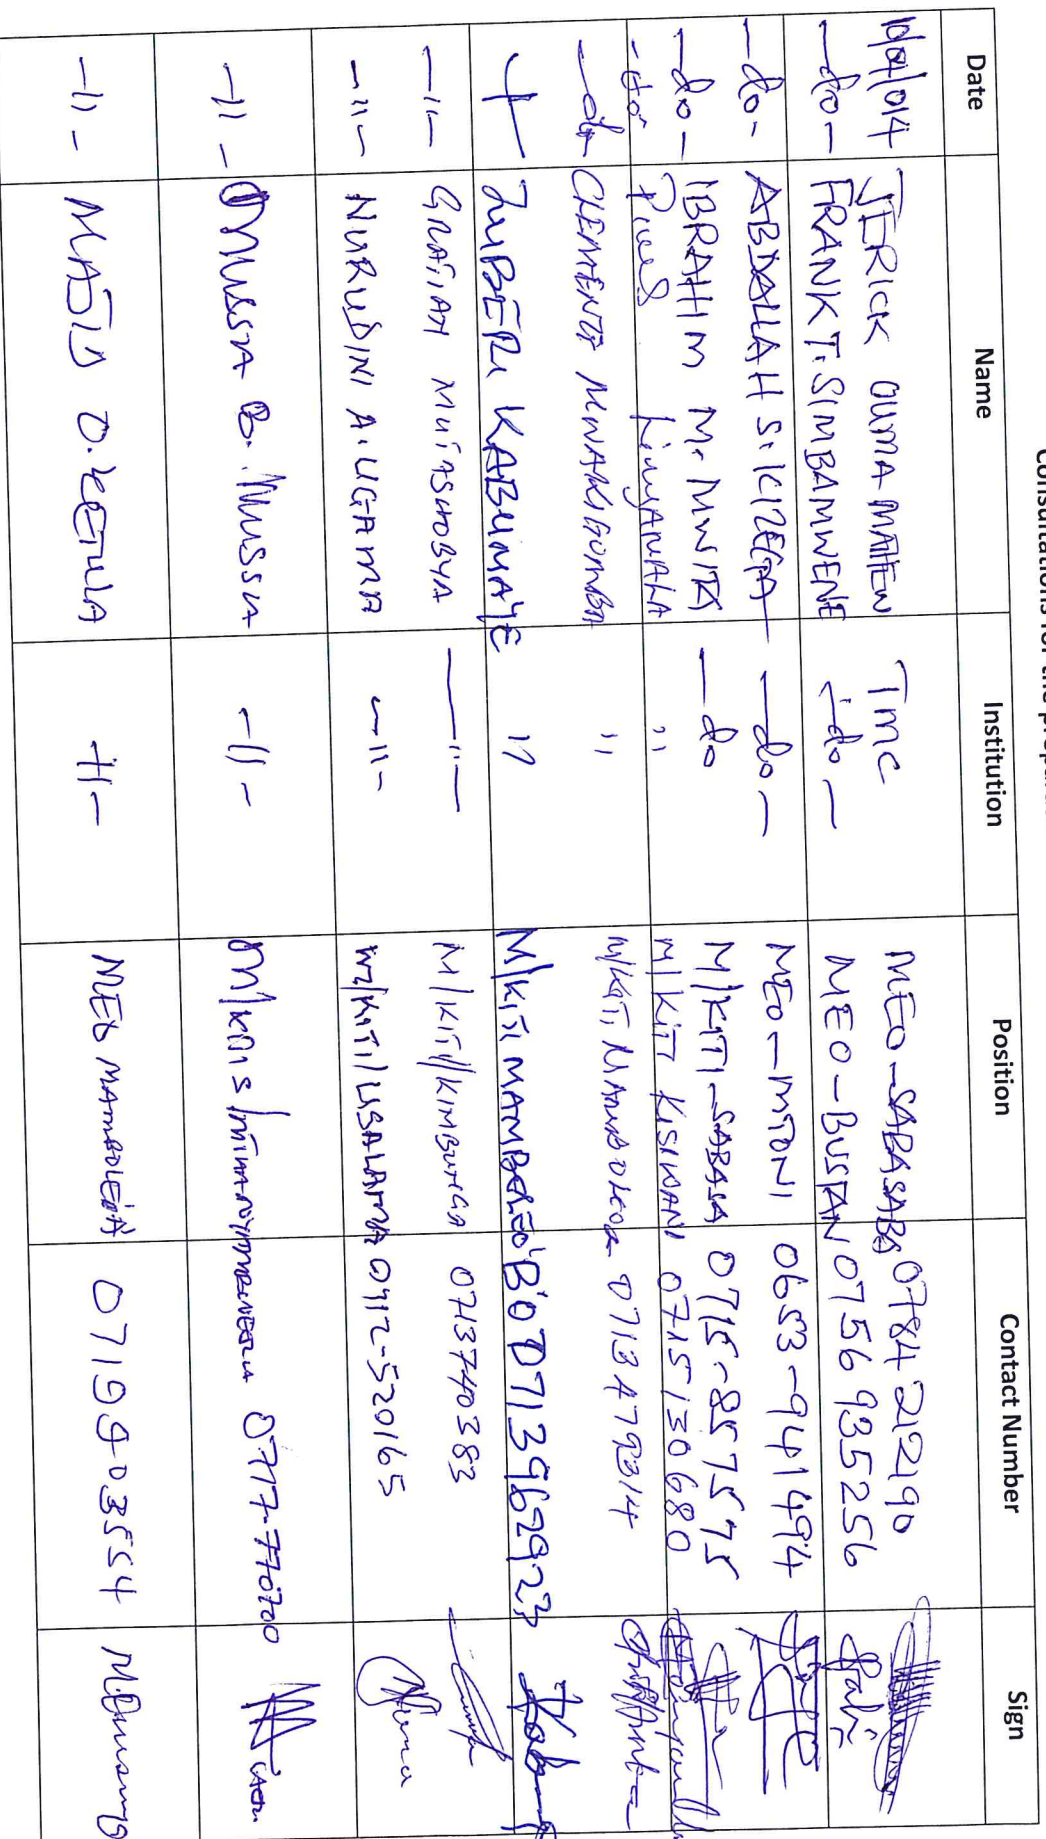 Consultations for the prepara
Date Name Institution Position Contact Number Sign
10/07/014 JERICK OUMA MATHEW TMC MEO-SABASABA 0784 212190
-do- FRANK T. SIMBAMWENE -do- MEO-BUSTANI 0756 935256
-do- ABDALLAH S. KIZEGA -do- MEO-MTONI 0653-941494
-do- IBRAHIM M. MWITA -do M/KITI-SABASA 0715-857575
-do- Limyanala " M/KITI KISIWANI 0715130680
-do- CLEMENCE MWAKIGOMBA " M/KITI 0713 479314
ZUBERI KABUMAYE " M/KITI MAMBOLEO 'B' 0713962923
-"- GRATIAN MUTASHOBYA -"- M/KITI/KIMBUNGA 0713740383
-"- NURUDINI A. UGAMA -"- M/KITI/USALAMA 0712-520165
-"- MUSSA B. MUSSA -"- 0717-770700
-"- MAJID O. -"- MEO MAMBOLEO A 0719903554